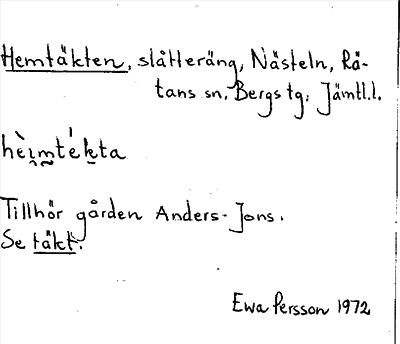 Hemtäkten, slåtteräng, Nästeln, Rä-
tans sn, Bergs tg, Jämtl.l.
hèi̯mté̱kta
Tillhör gården Anders-Jons.
Se täkt.
Ewa Persson 1972